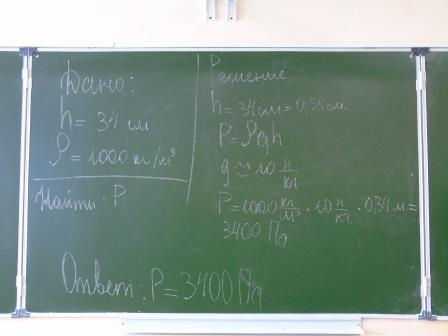 Дано:
h = 34 см
ρ = 1000 кг/м³
Найти P
Решение
h = 34 см = 0,34 см.
P = ρgh
g ≈ 10 н/кг
P = 1000 кг/м³ · 10 н/кг · 0,34 м =
3400 Па
Ответ: P = 3400 Па